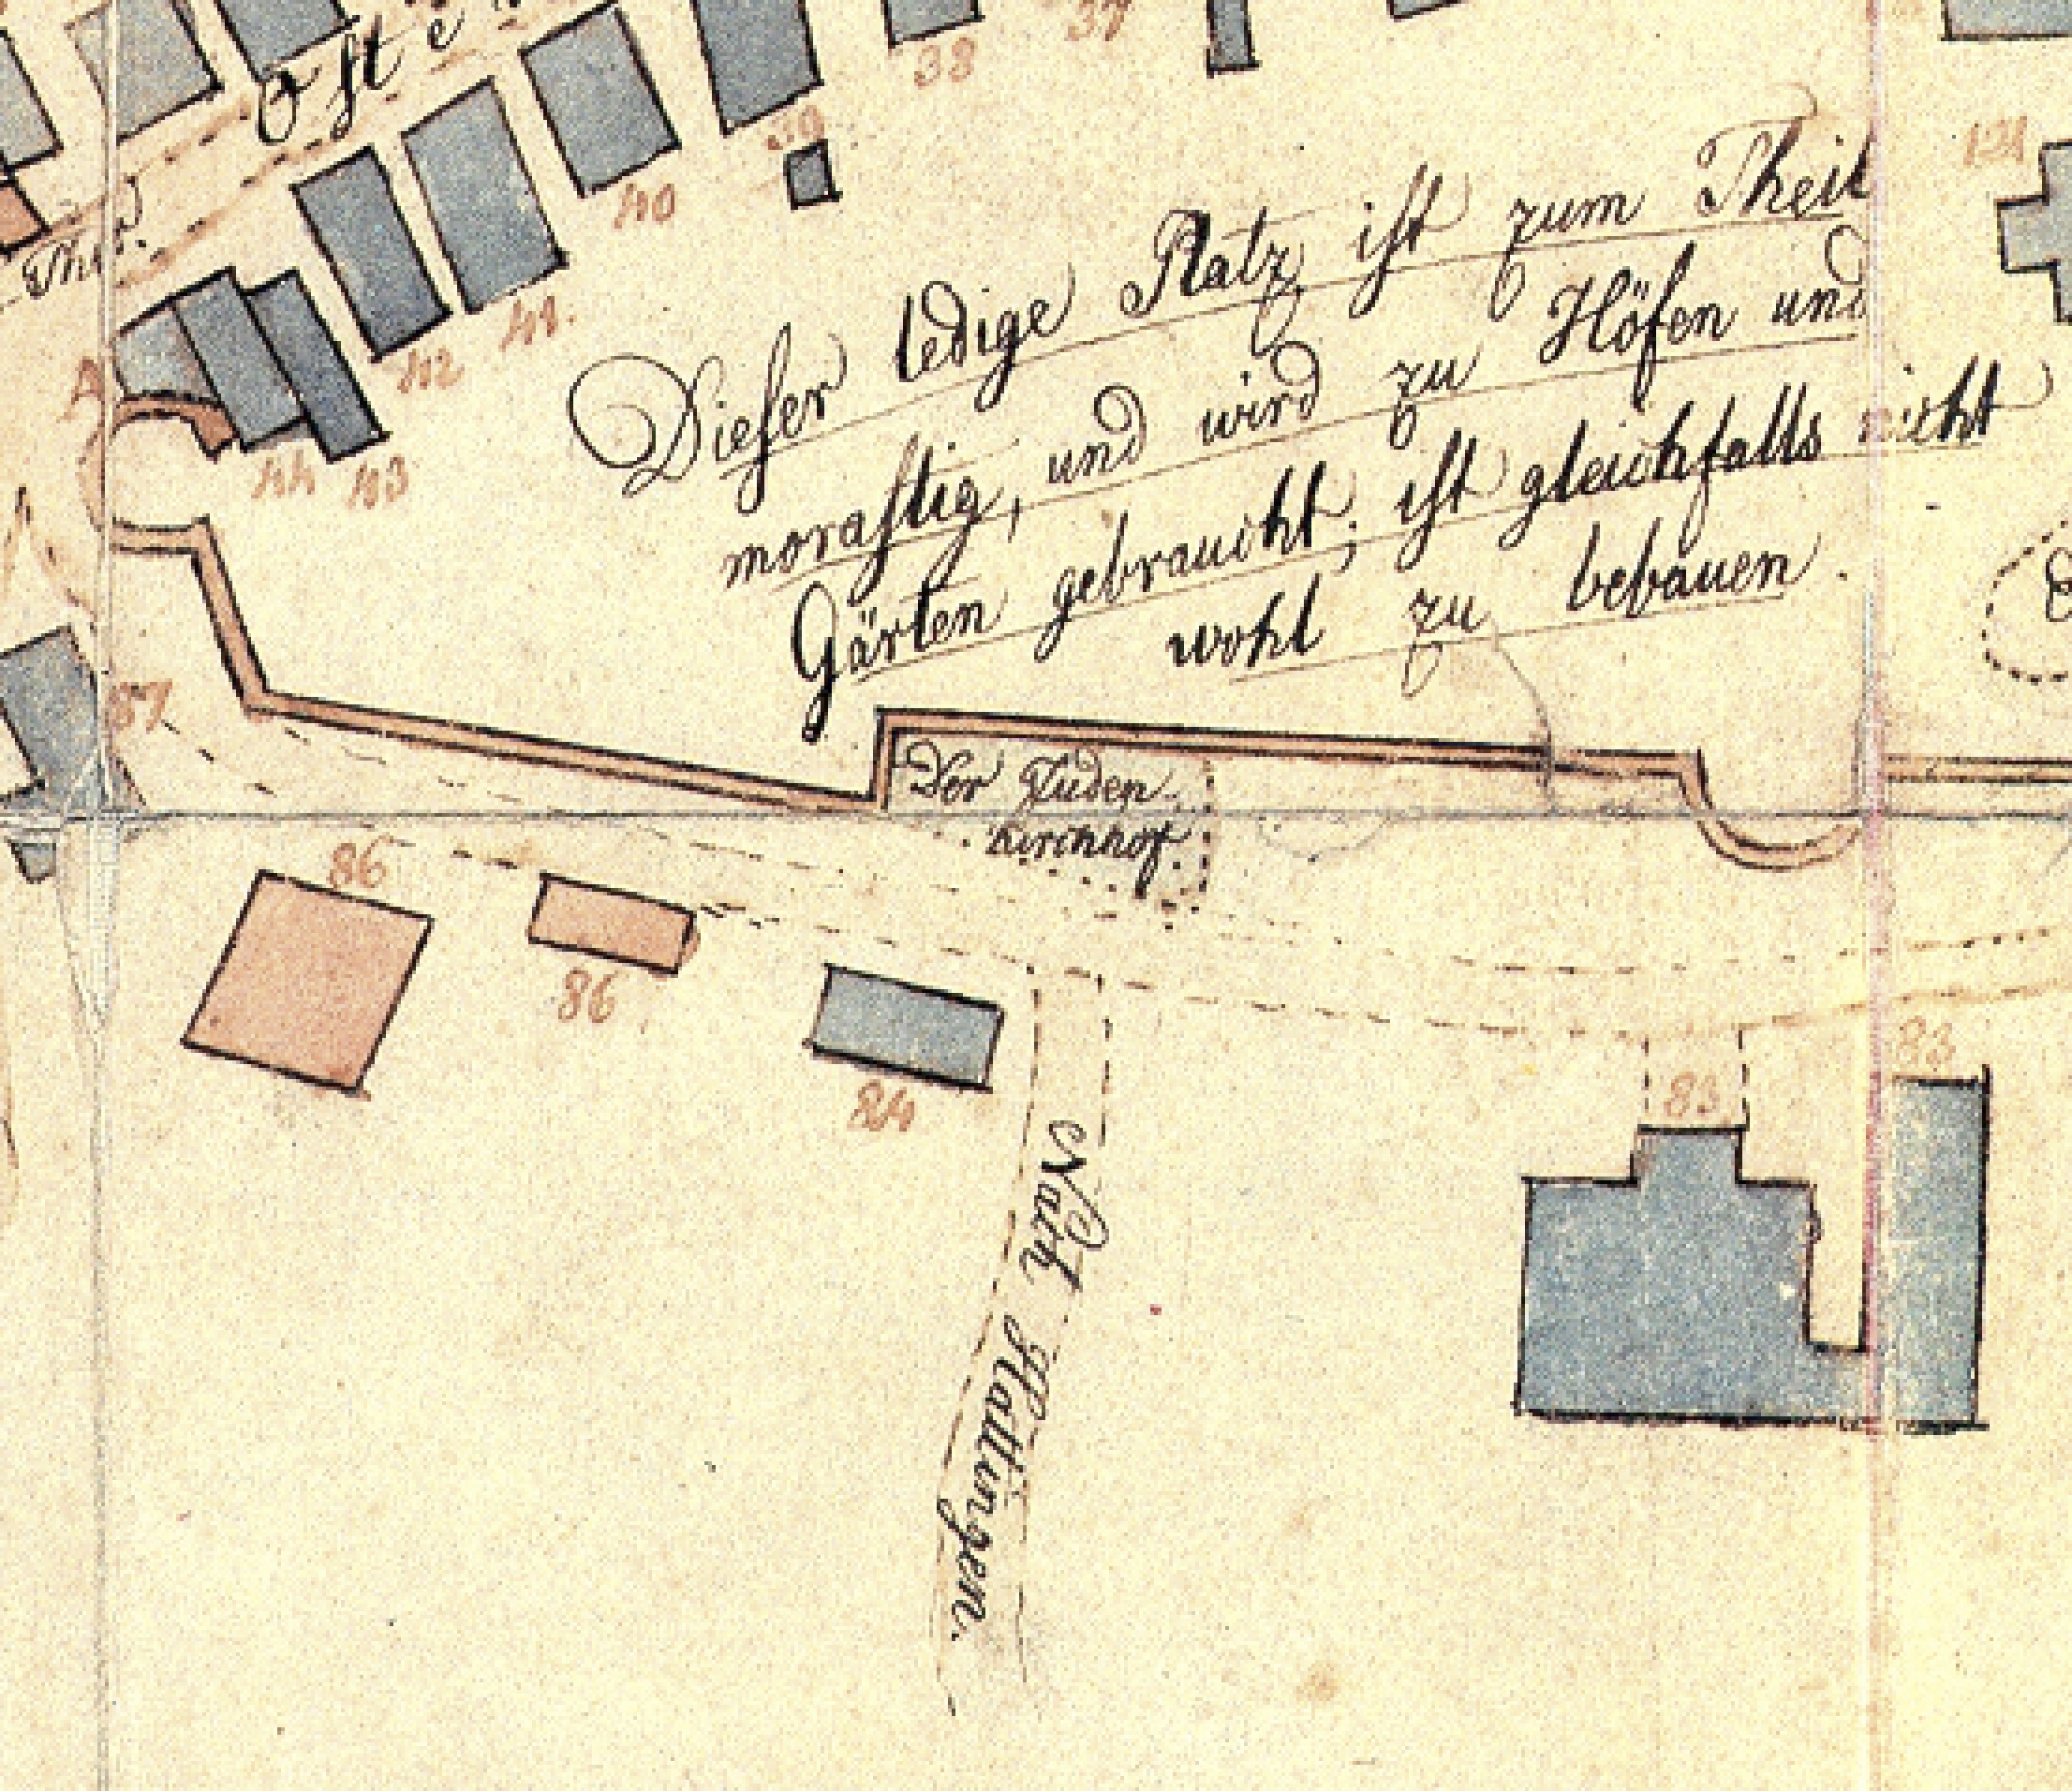 37
38
Oste
39
121
40
Thor.
41.
42
A
44 43
Dieser ledige Platz ist zum Theil
morastig, und wird zu Höfen und
Gärten gebraucht; ist gleichfalls nicht
wohl zu bebauen.
87
Der Juden
Kirchhof
86
86
84
83
83
Nach Hattingen.